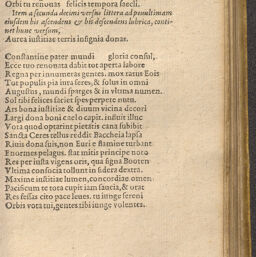 Orbi tu renouas felicis tempora saecli.
Item a secunda decimi versus littera ad penultimam
eiusdem bis ascendens & bis descendens lubrica, conti-
net hunc versum,
Aurea iustitiae terris insignia donas.
Constantine pater mundi gloria consul,
Ecce tuo renouata dabit tot aperta labore
Regna per innumeras gentes. mox ratus Eois
Tot populis pia iura feres, & solus in omni
Augustus, mundi sparges & in vltima numen.
Sol tibi felices faciet spes perpete nutu.
Ars bona iustitiae & diuum vicina decori
Largi dona boni caelo capit. instuit illuc
Vota quod optarint pietatis cana sibibit
Sancta Ceres tellus reddit Baccheia lapsa
Riuis dona suis, non Euri e flamine turbant
Enormes pelagus. stat mitis principe noto
Res per iusta vigens oris, qua signa Booten
Vltima consocia tollunt in sidera dextra.
Maxime iustitiae lumen, concordiae omen.
Pacificum te tota cupit iam saucia, & orat
Res fessas cito pace leues. tu iunge sereni
Orbis vota tui, gentes tibi iunge volentes.